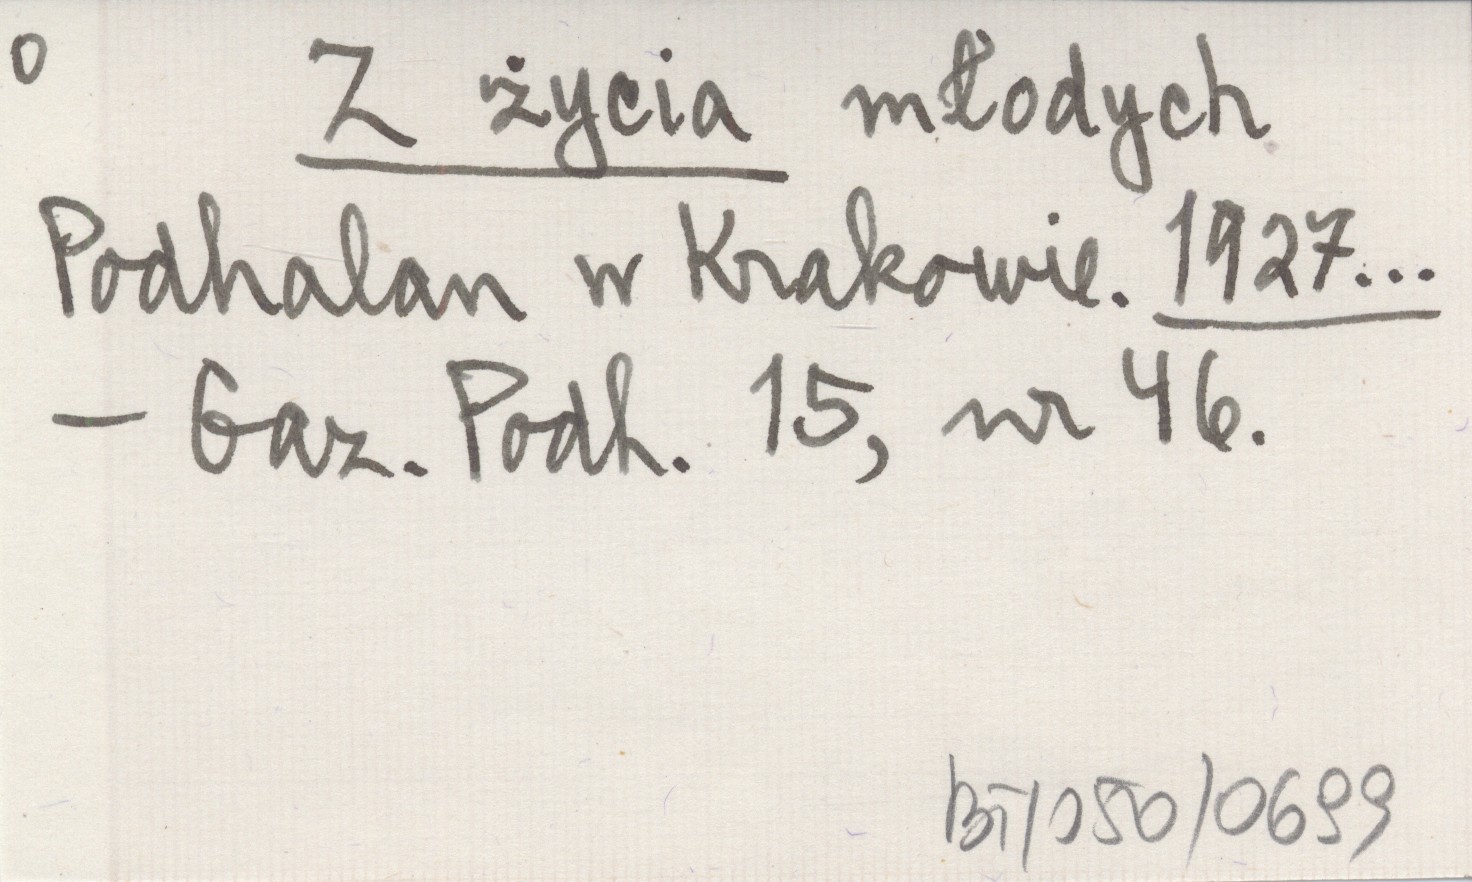 o
Z życia młodych
Podhalan w Krakowie. 1927...
— Gaz. Podh. 15, nr 46.
BT/050/0699